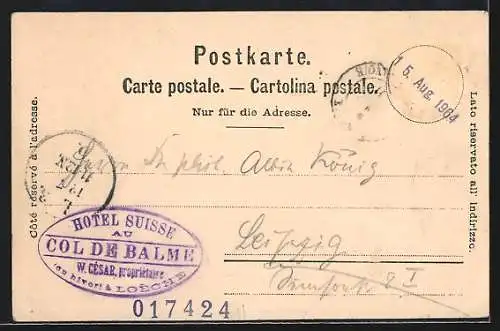 Postkarte.
Carte postale. — Cartolina postale.
Nur für die Adresse.
Côté réservé à l'adresse.
Lato riservato all' indirizzo.
15. Aug. 1904
Dr phil. Albin König
Leipzig
HOTEL SUISSE
AU
COL DE BALME
W. CÉSAR, propriétaire
(en hiver) à LOÈCHE
017424